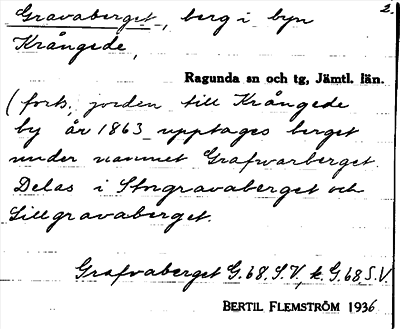 2.
Gravaberget, berg i byn
Krångede,
Ragunda sn och tg, Jämtl. län.
(forts. jorden till Krångede
by år 1863 upptages berget
under namnet Grafvarberget.
Delas i Storgravaberget och
Lillgravaberget.
Grafvaberget G.68.S.V, k G.68,S.V.
BERTIL FLEMSTRÖM 1936